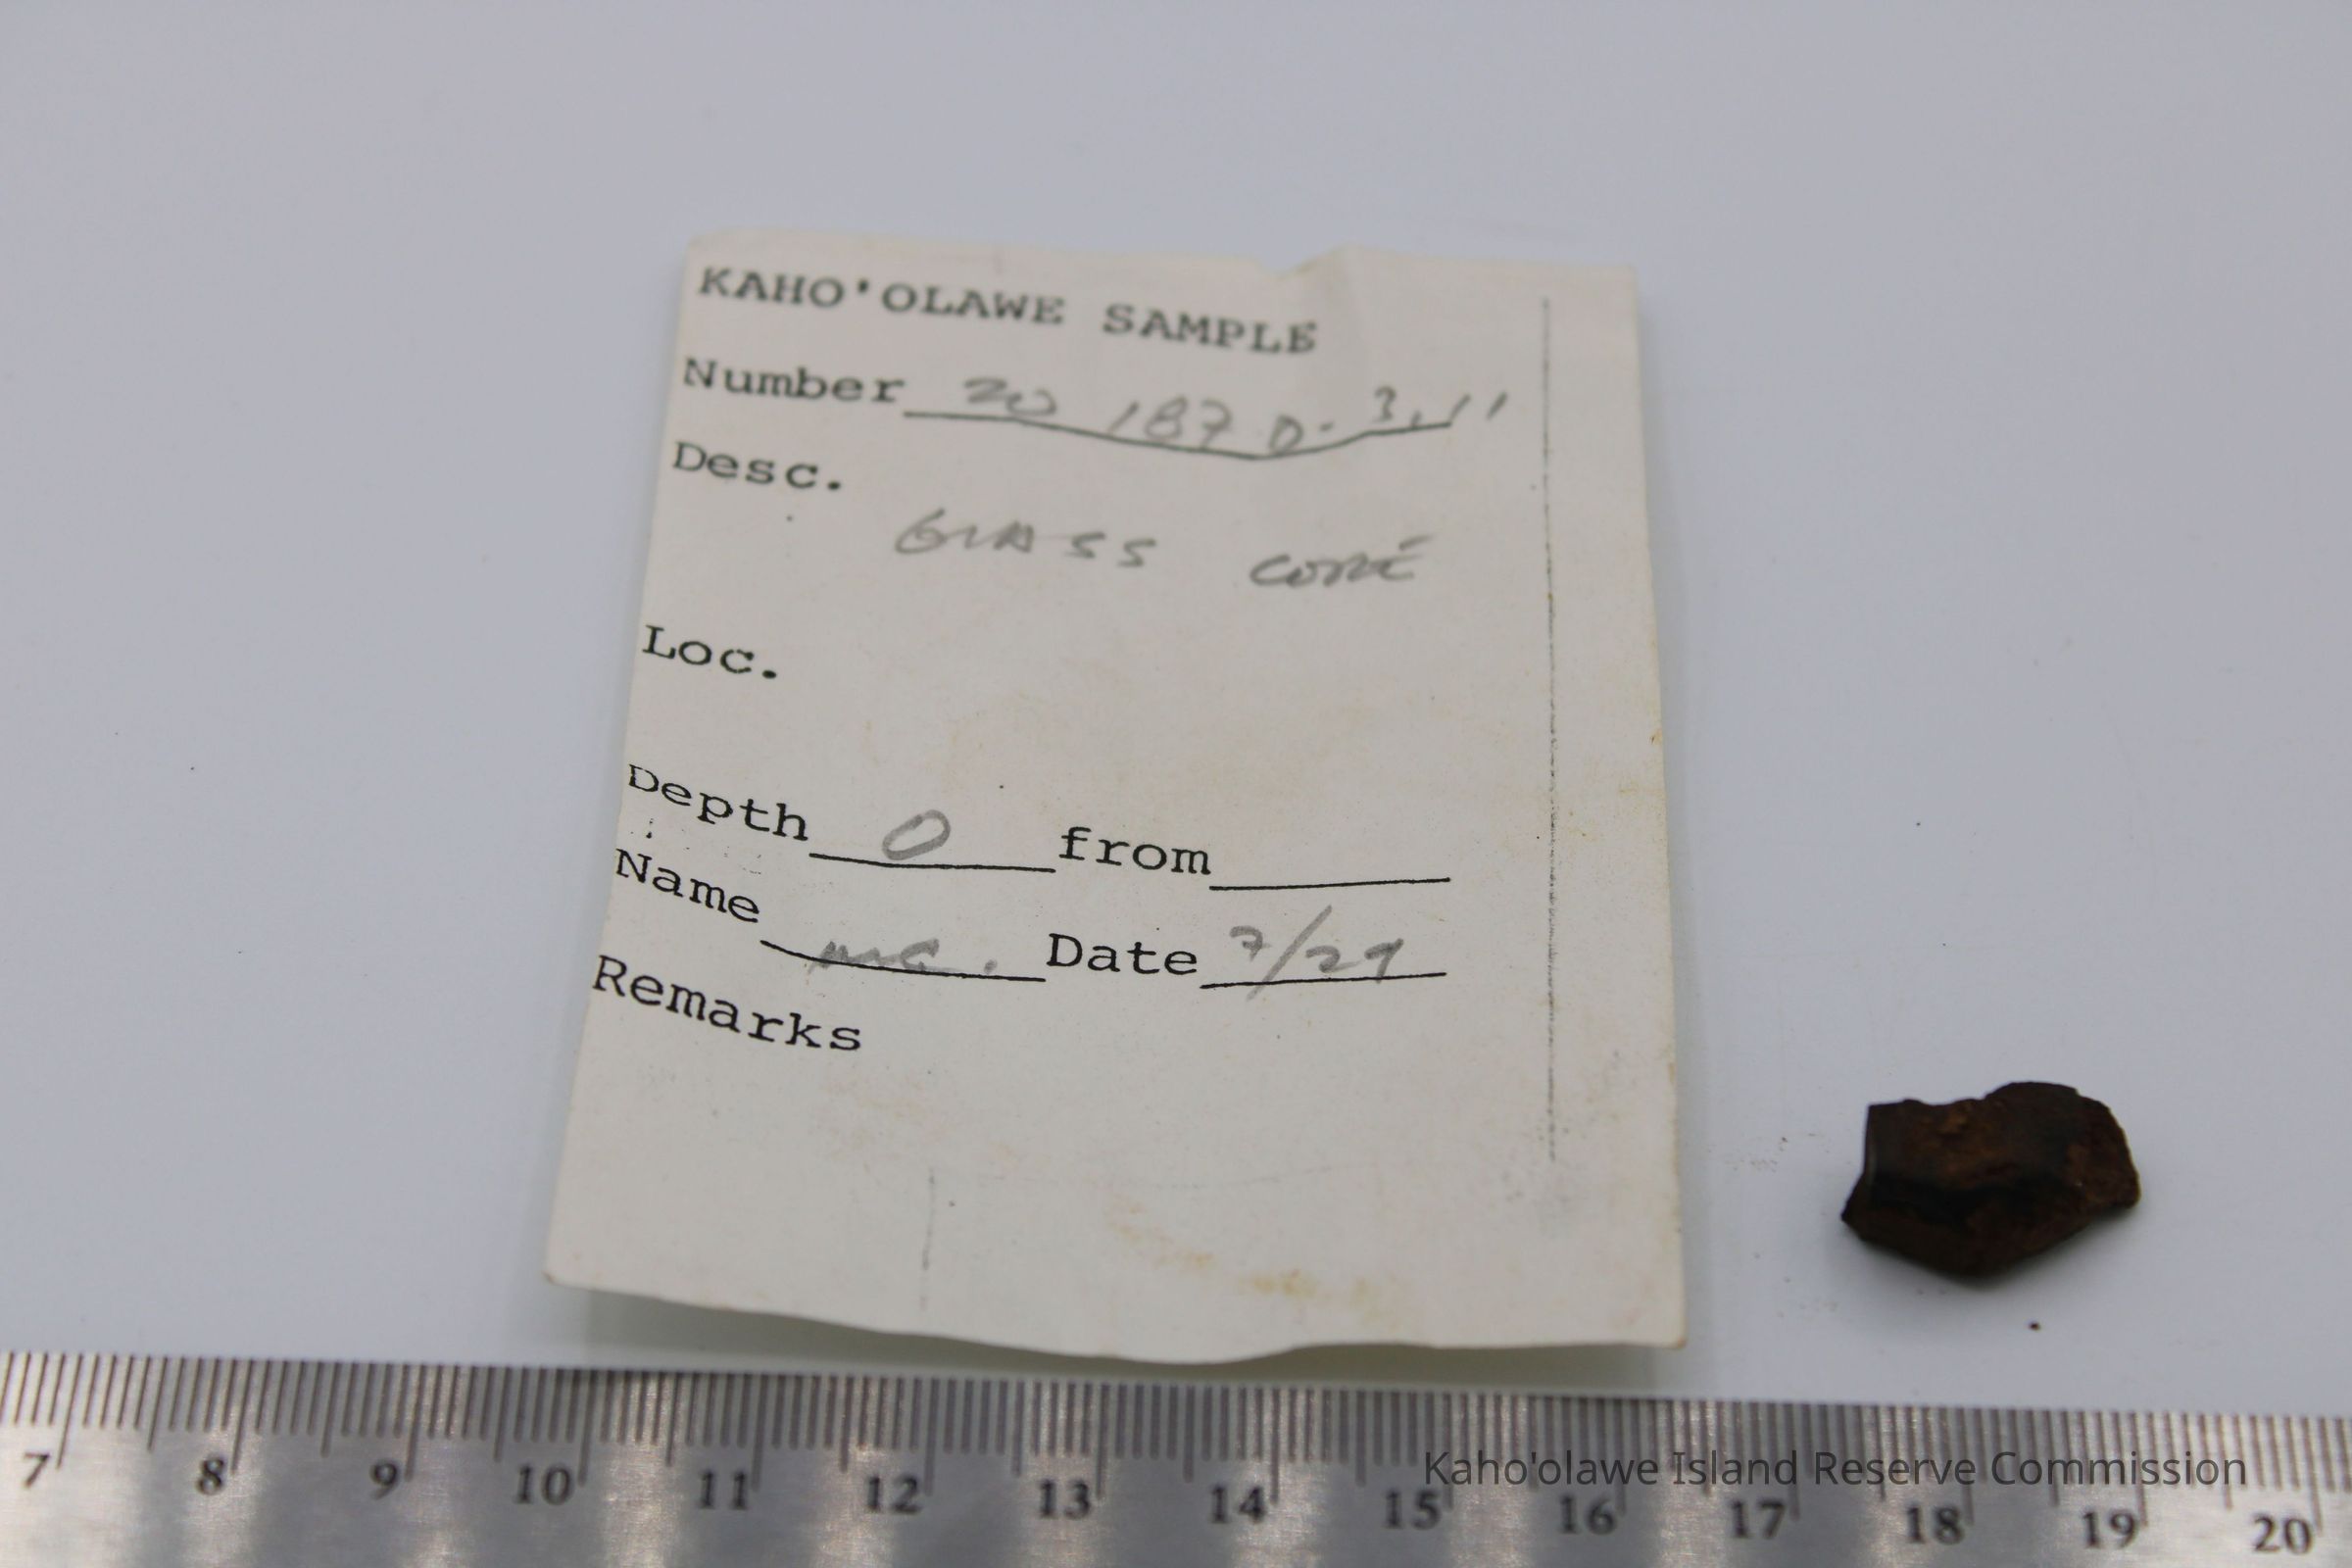 KAHO'OLAWE SAMPLE
Number 20 187 D. 3.11
Desc.
GLASS CORE
Loc.
Depth 0 from
Name Date 7/29
Remarks
7 8 9 10 11 12 13 14 15 16 17 18 19 20
Kaho'olawe Island Reserve Commission